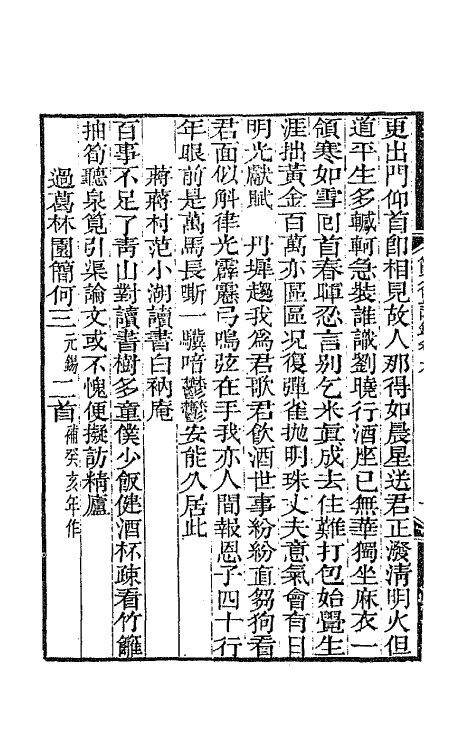 更出門仰首卽相見故人那得如晨星送君正潑淸明火但
道平生多轗軻急裝誰識劉曉行酒座已無華獨坐麻衣一
領寒如雪回首春暉忍言别乞米眞成去住難打包始覺生
涯拙黃金百萬亦區區況復彈雀拋明珠丈夫意氣會有日
明光獻賦　丹墀趨我爲君歌君飮酒世事紛紛直芻狗看
君面似斛律光霹靂弓鳴弦在手我亦人間報恩子四十行
年眼前是萬馬長嘶一驥喑鬱鬱安能久居此
蔣蔣村范小湖讀書白衲庵
百事不足了靑山對讀書樹多童僕少飯健酒杯疎看竹籬
抽筍聽泉筧引渠論文或不愧便擬訪精廬
過葛林園簡何三元錫二首補癸亥年作